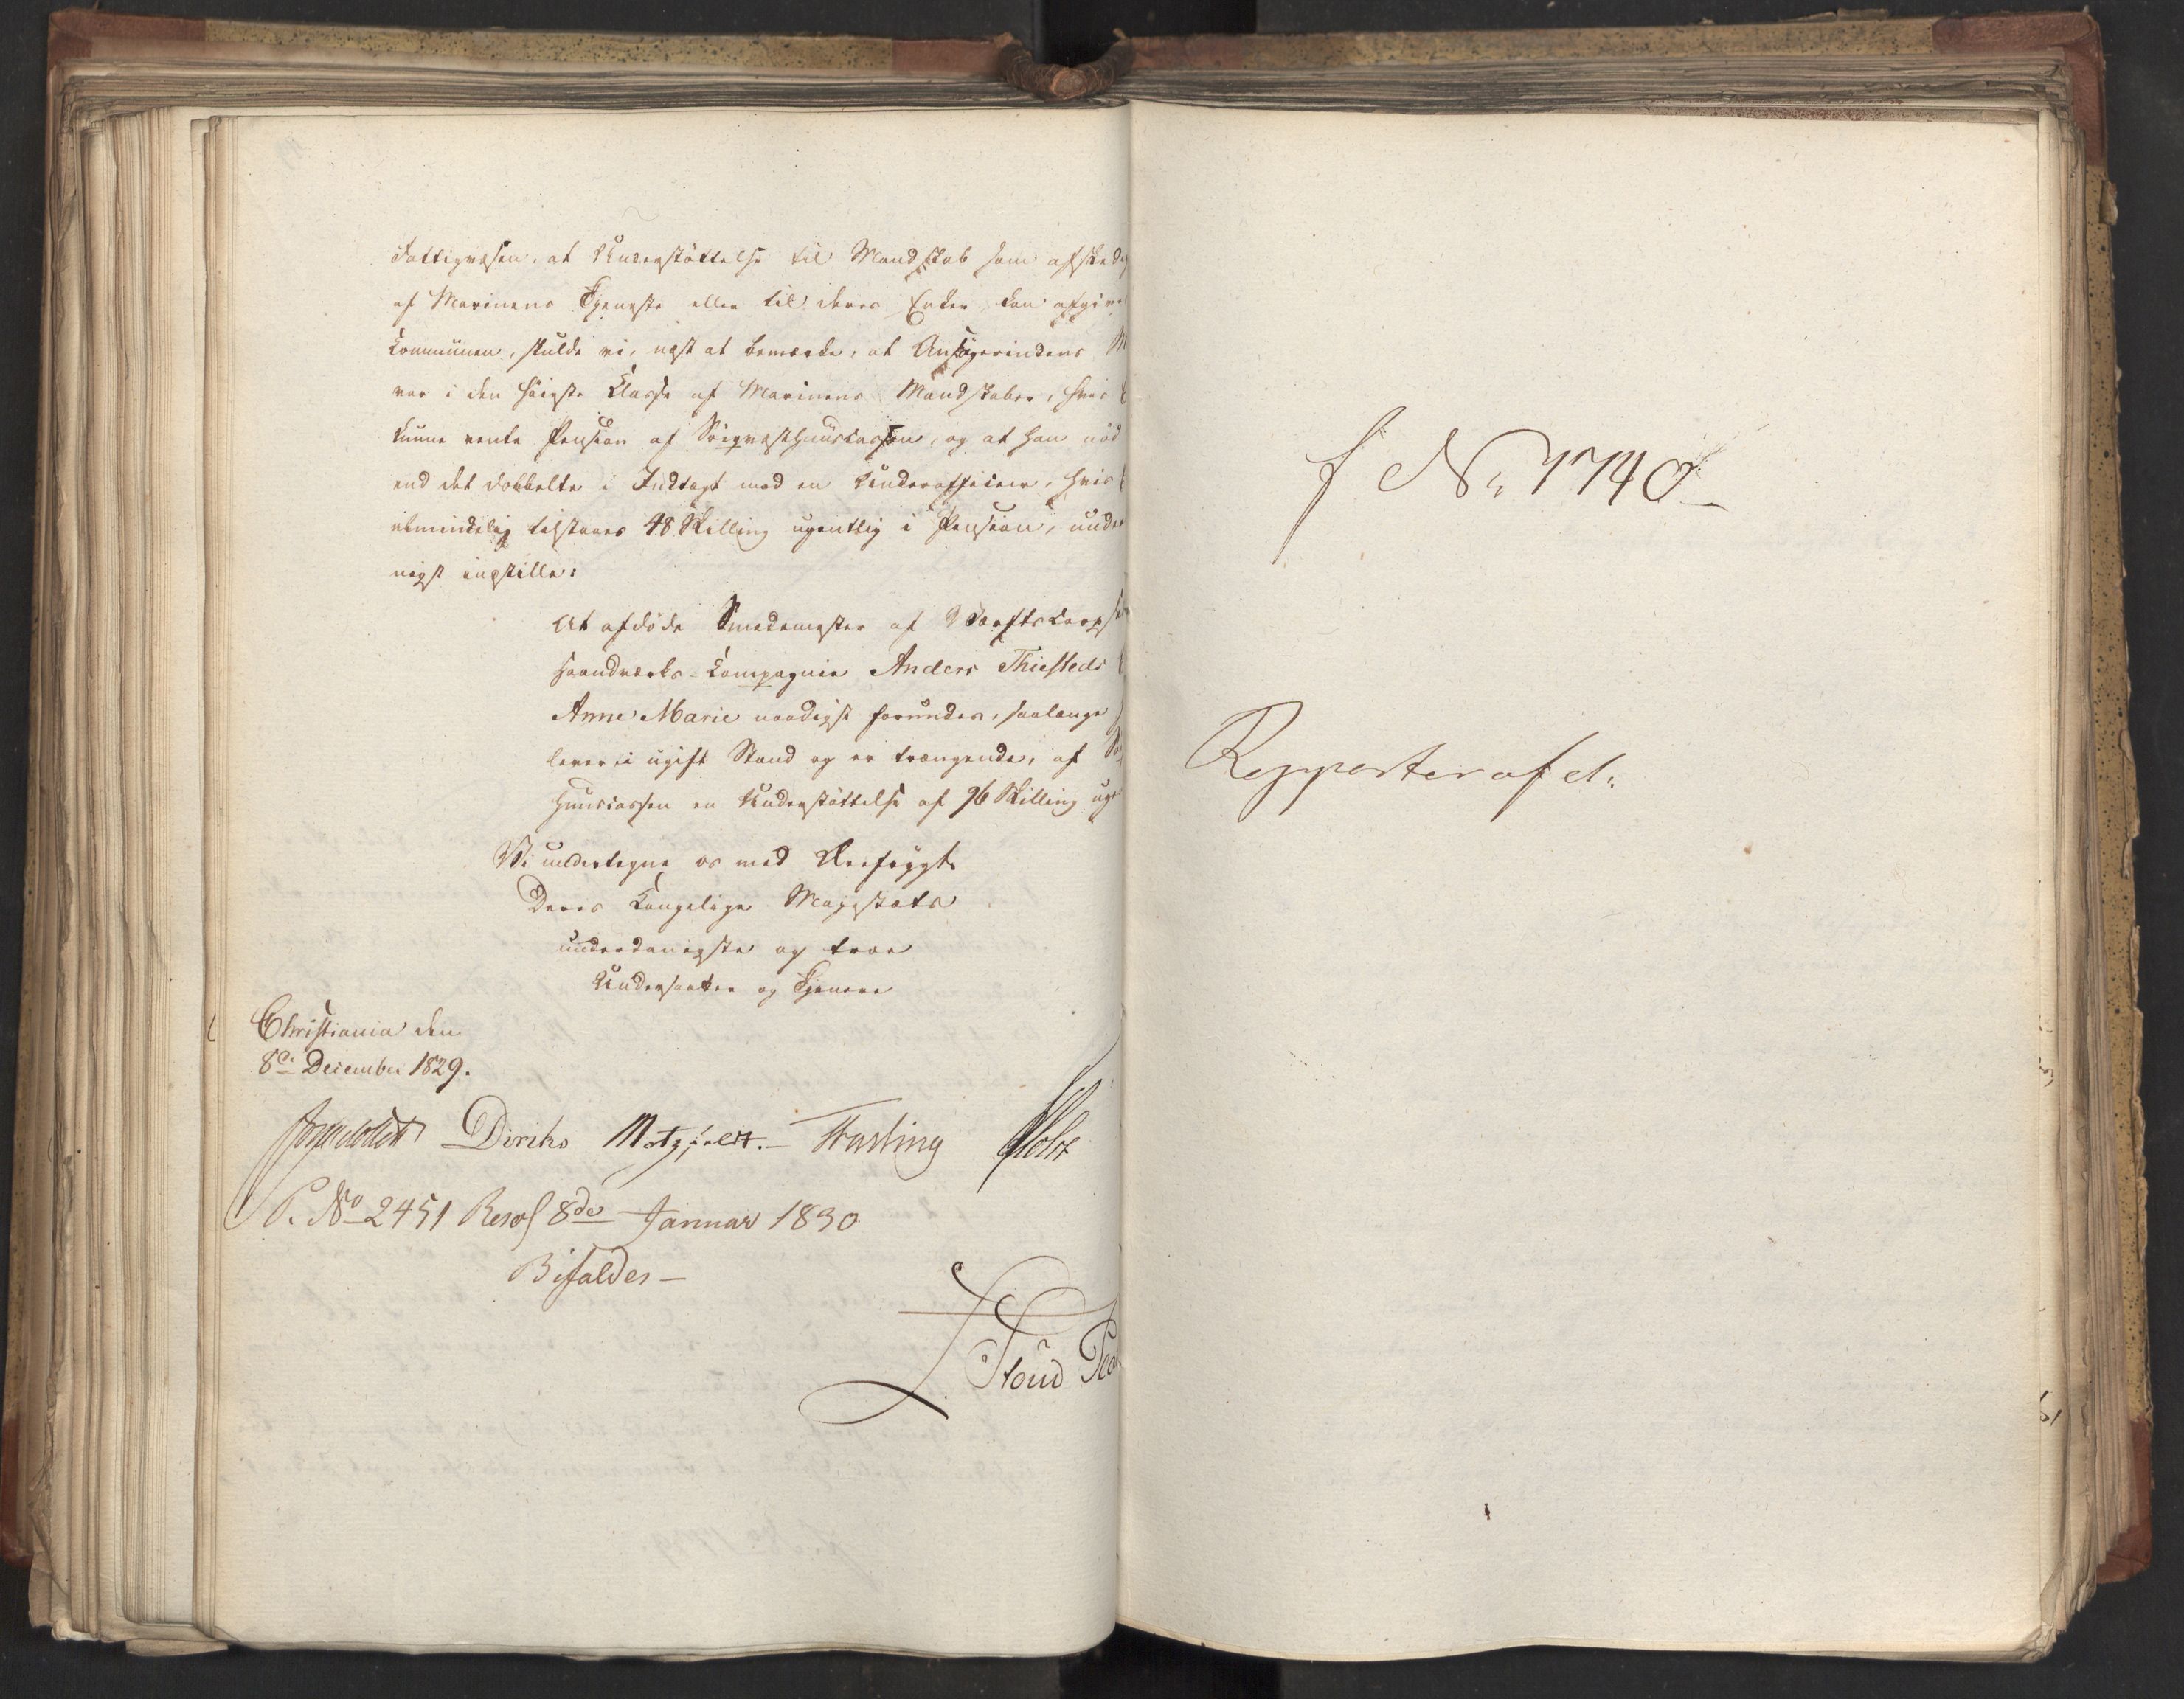 Fattigvæsen, at Understøttelse til Mandskab som afske
af Marinens Tjeneste eller til deres Enker kan afgives
Communen, skulde vi, næst at bemærke, at Ansøgerindens M
var i den høieste Classe af Marinens Mandskaber, hvis
kunne vente Pension af Søeqvæsthuuscassen, og at han nød
end det dobbelte i Indtægt mod en Underofficeer, hvis
almindelig tilstaaes 48 Skilling ugentlig i Pension, under
nigst indstille:
At afdøde Smedemester af Værftscorpsets
Haandværks-Compagnie Anders Thiesteds
Anne Marie naadigst forundes, saalænge
lever i ugift Stand og er trængende, af Sø
Huuscassen en Understøttelse af 96 Skilling uge
Vi undertegne os med Ærefrygt
Deres Kongelige Majestæts
underdanigste og troe
Undersaatter og Tjenere
Christiania den
8de December 1829.
Diriks Motzfeldt. Fasting Holst
P. No 2451 Resol 8de Januar 1830
Bifaldes –
f No 1740
Rapporter afd.